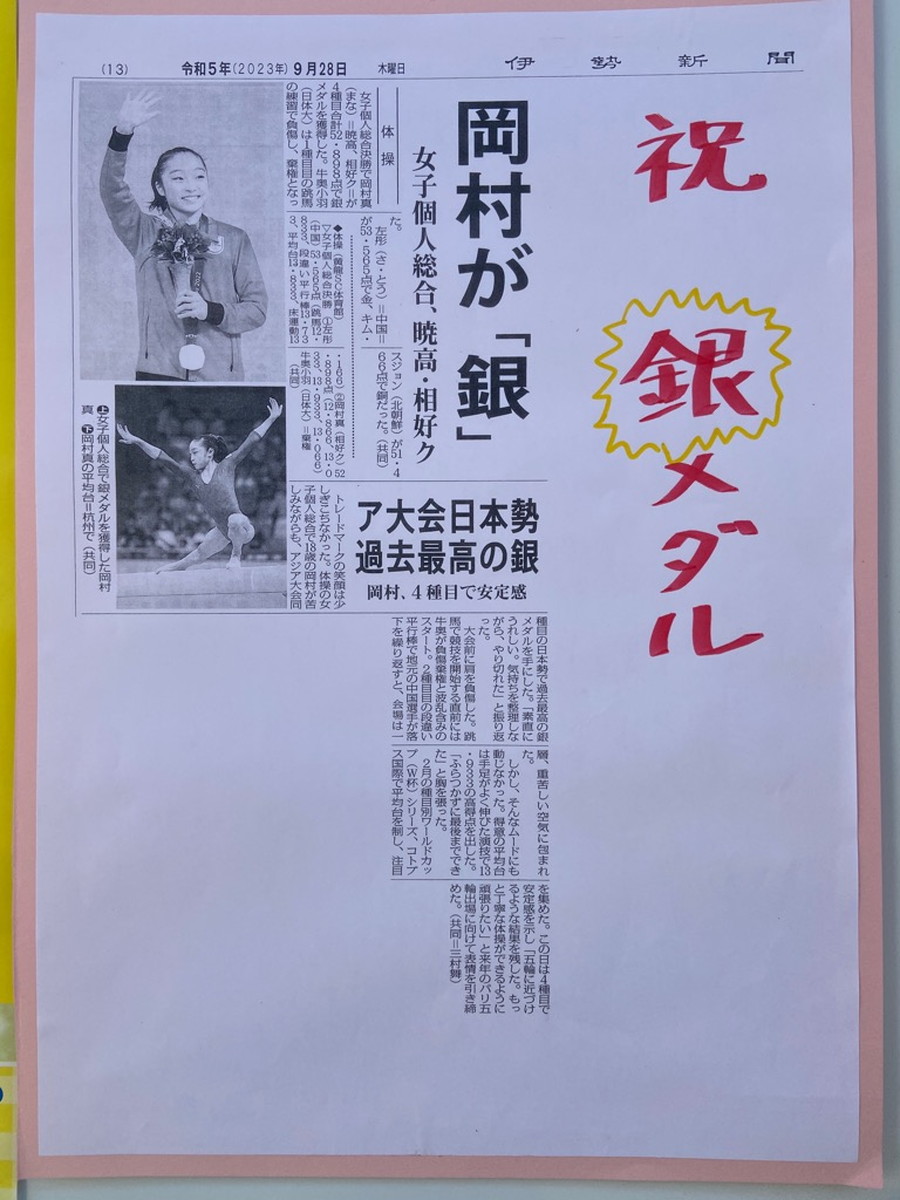 (13)
令和5年(2023年)9月28日
木曜日
伊勢新聞
祝
銀
メダル
岡村が「銀」
女子個人総合、暁高・相好ク
体操
女子個人総合決勝で岡村真
(まな)=暁高、相好ク=が
4種目合計52・898点で銀
メダルを獲得した。牛奥小羽
(日体大)は1種目目の跳馬
の練習で負傷し、棄権となっ
た。
左彤(さ・とう)=中国=
が53・565点で金、キム・
スジョン(北朝鮮)が51・4
66点で銅だった。(共同)
◆体操(黄龍SC体育館)
▽女子個人総合決勝 ①左彤
(中国)53・565点(跳馬12・
833、段違い平行棒13・73
3、平均台13・833、床運動13
・166)②岡村真(相好ク)52
・898点(12・866、13・0
33、13・933、13・066)
牛奥小羽(日体大)=棄権
(共同)
㊤女子個人総合で銀メダルを獲得した岡村
真 ㊦岡村真の平均台=杭州で(共同)
ア大会日本勢
過去最高の銀
岡村、4種目で安定感
トレードマークの笑顔は少
しぎこちなかった。体操の女
子個人総合で18歳の岡村が苦
しみながらも、アジア大会同
種目の日本勢で過去最高の銀
メダルを手にした。「素直に
うれしい。気持ちを整理しな
がら、やり切れた」と振り返
った。
大会前に肩を負傷した。跳
馬で競技を開始する直前には
牛奥が負傷棄権と波乱含みの
スタート。2種目目の段違い
平行棒で地元の中国選手が落
下を繰り返すと、会場は一
層、重苦しい空気に包まれ
た。
しかし、そんなムードにも
動じなかった。得意の平均台
は手足がよく伸びた演技で13
・933の高得点を出した。
「ふらつかずに最後まででき
た」と胸を張った。
2月の種目別ワールドカッ
プ(W杯)シリーズ、コトブ
ス国際で平均台を制し、注目
を集めた。この日は4種目で
安定感を示し「五輪に近づけ
るような結果を残した。もっ
と丁寧な体操ができるように
頑張りたい」と来年のパリ五
輪出場に向けて表情を引き締
めた。(共同=三村舞)